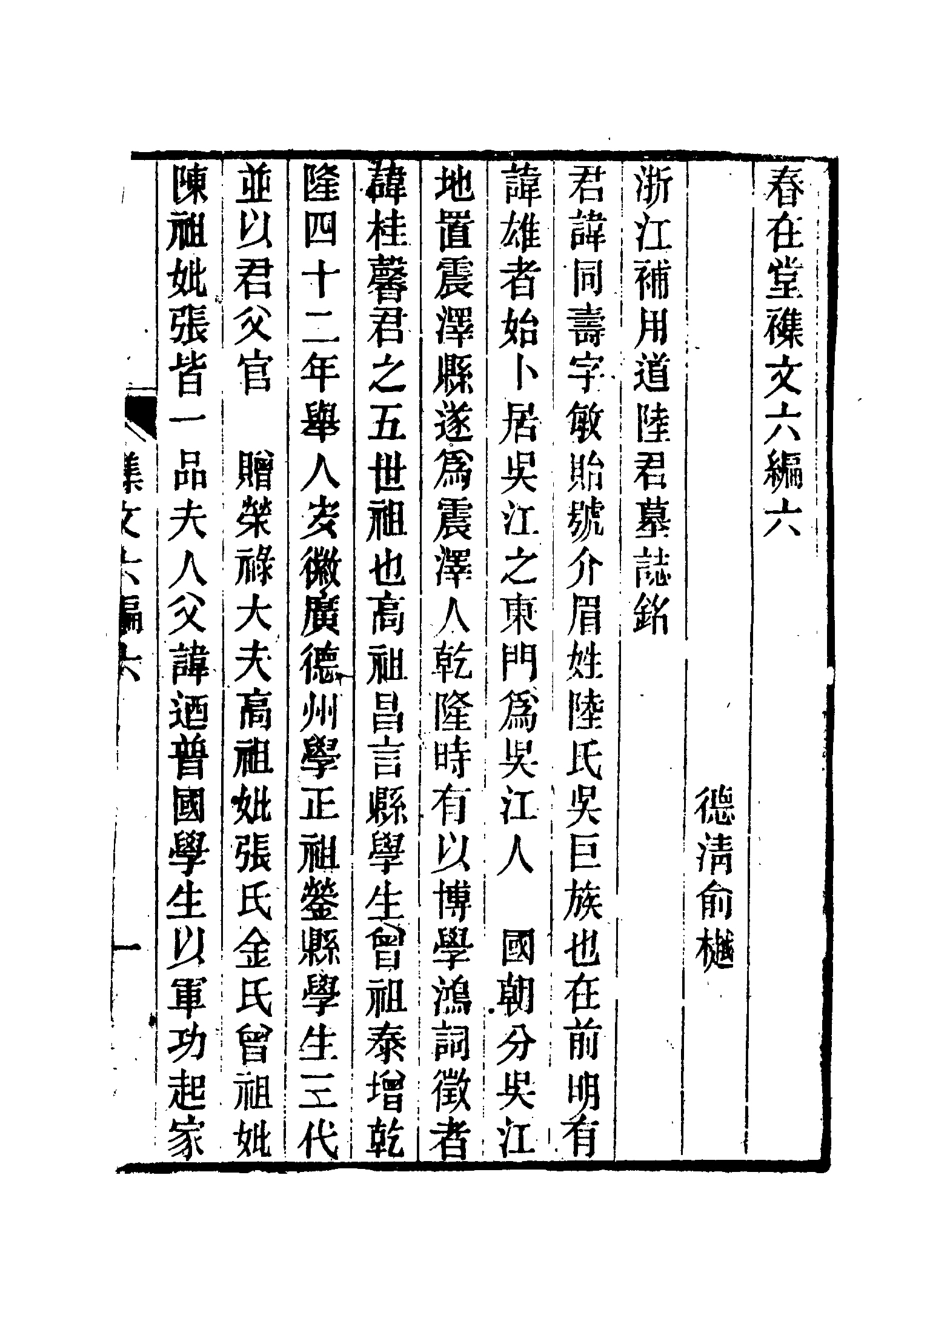 春在堂襍文六編六
德淸俞樾
浙江補用道陸君墓誌銘
君諱同壽字敏貽號介眉姓陸氏吳巨族也在前明有
諱雄者始卜居吳江之東門爲吳江人　國朝分吳江
地置震澤縣遂爲震澤人乾隆時有以博學鴻詞徵者
諱桂馨君之五世祖也高祖昌言縣學生曾祖泰增乾
隆四十二年舉人安徽廣德州學正祖鎣縣學生三代
並以君父官　贈榮祿大夫高祖妣張氏金氏曾祖妣
陳祖妣張皆一品夫人父諱迺普國學生以軍功起家
集文六編六
一